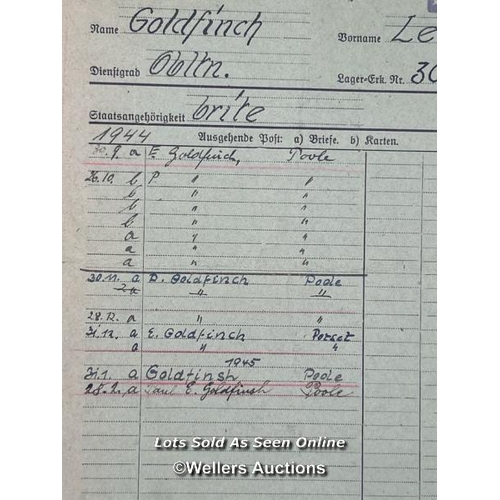 Name Goldfinch Vorname Le
Dienstgrad Obltn. Lager-Erk. Nr. 30
Staatsangehörigkeit brite
1944 Ausgehende Post: a) Briefe. b) Karten.
30.9. a E. Goldfinch, Poole
26.10. b P. " "
b " "
b " "
b " "
a " "
a " "
a " "
30.11. a D. Goldfinch Poole
" "
28.12. a " "
31.12. a E. Goldfinch Dorset
a " "
1945
31.1. a Goldfinsh Poole
28.2. a Paul E. Goldfinsh Poole
Lots Sold As Seen Online
©Wellers Auctions